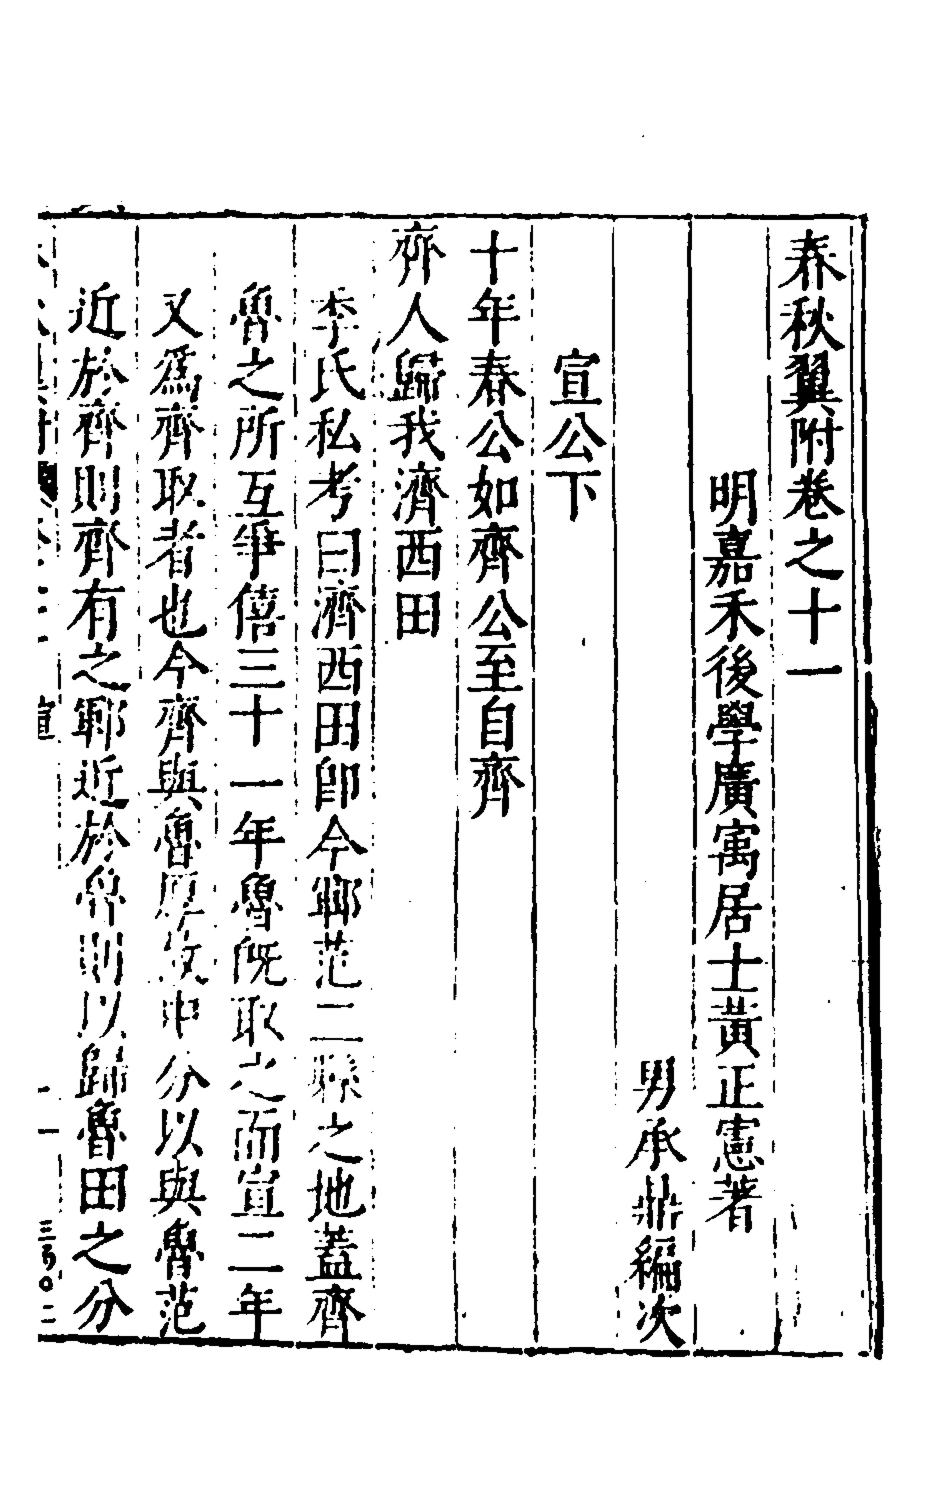 春秋翼附卷之十一
明嘉禾後學廣寓居士黃正憲著
男承鼎編次
宣公下
十年春公如齊公至自齊
齊人歸我濟西田
李氏私考曰濟西田卽今鄆范二縣之地蓋齊
魯之所互爭僖三十一年魯旣取之而宣二年
又爲齊取者也今齊與魯厚故中分以與魯范
近於齊則齊有之鄆近於魯則以歸魯田之分